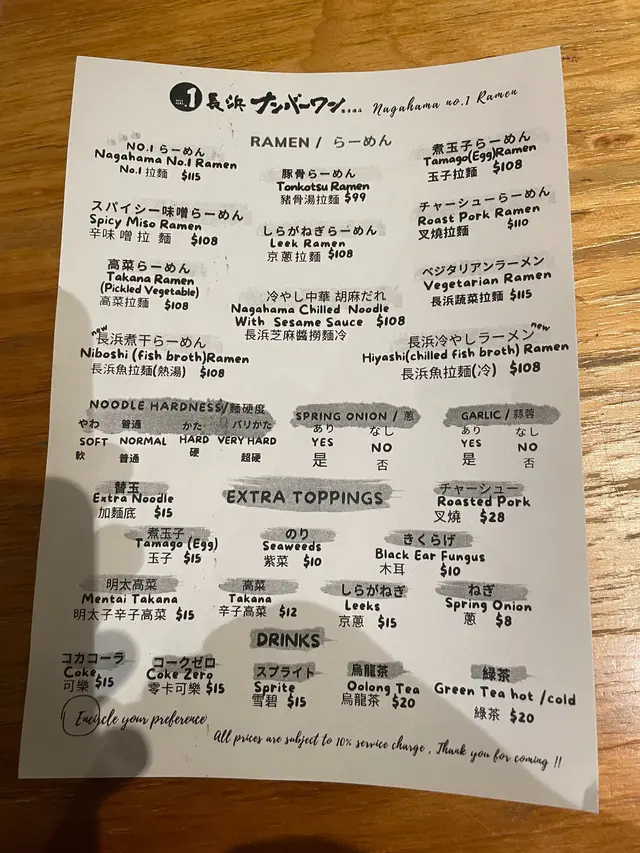 No.1 長浜ナンバーワン Nagahama no.1 Ramen
RAMEN / らーめん
NO.1 らーめん
Nagahama No.1 Ramen
No.1 拉麵 $115
豚骨らーめん
Tonkotsu Ramen
豬骨湯拉麵 $99
煮玉子らーめん
Tamago(Egg)Ramen
玉子拉麵 $108
スパイシー味噌らーめん
Spicy Miso Ramen
辛味噌拉麵 $108
しらがねぎらーめん
Leek Ramen
京蔥拉麵 $108
チャーシューらーめん
Roast Pork Ramen
叉燒拉麵 $110
高菜らーめん
Takana Ramen
(Pickled Vegetable)
高菜拉麵 $108
冷やし中華 胡麻だれ
Nagahama Chilled Noodle
With Sesame Sauce $108
長浜芝麻醬撈麵冷
ベジタリアンラーメン
Vegetarian Ramen
長浜蔬菜拉麵 $115
new
長浜煮干らーめん
Niboshi (fish broth)Ramen
長浜魚拉麵(熱湯) $108
長浜冷やしラーメン new
Hiyashi(chilled fish broth) Ramen
長浜魚拉麵(冷) $108
NOODLE HARDNESS/麵硬度
やわ 普通 かた バリかた
SOFT NORMAL HARD VERY HARD
軟 普通 硬 超硬
SPRING ONION / 蔥
あり なし
YES NO
是 否
GARLIC / 蒜蓉
あり なし
YES NO
是 否
替玉
Extra Noodle
加麵底 $15
EXTRA TOPPINGS
チャーシュー
Roasted Pork
叉燒 $28
煮玉子
Tamago (Egg)
玉子 $15
のり
Seaweeds
紫菜 $10
きくらげ
Black Ear Fungus
木耳 $10
明太高菜
Mentai Takana
明太子辛子高菜 $15
高菜
Takana
辛子高菜 $12
しらがねぎ
Leeks
京蔥 $15
ねぎ
Spring Onion
蔥 $8
DRINKS
コカコーラ
Coke
可樂 $15
コークゼロ
Coke Zero
零卡可樂 $15
スプライト
Sprite
雪碧 $15
烏龍茶
Oolong Tea
烏龍茶 $20
緑茶
Green Tea hot /cold
綠茶 $20
Encircle your preference
All prices are subject to 10% service charge , Thank you for coming !!